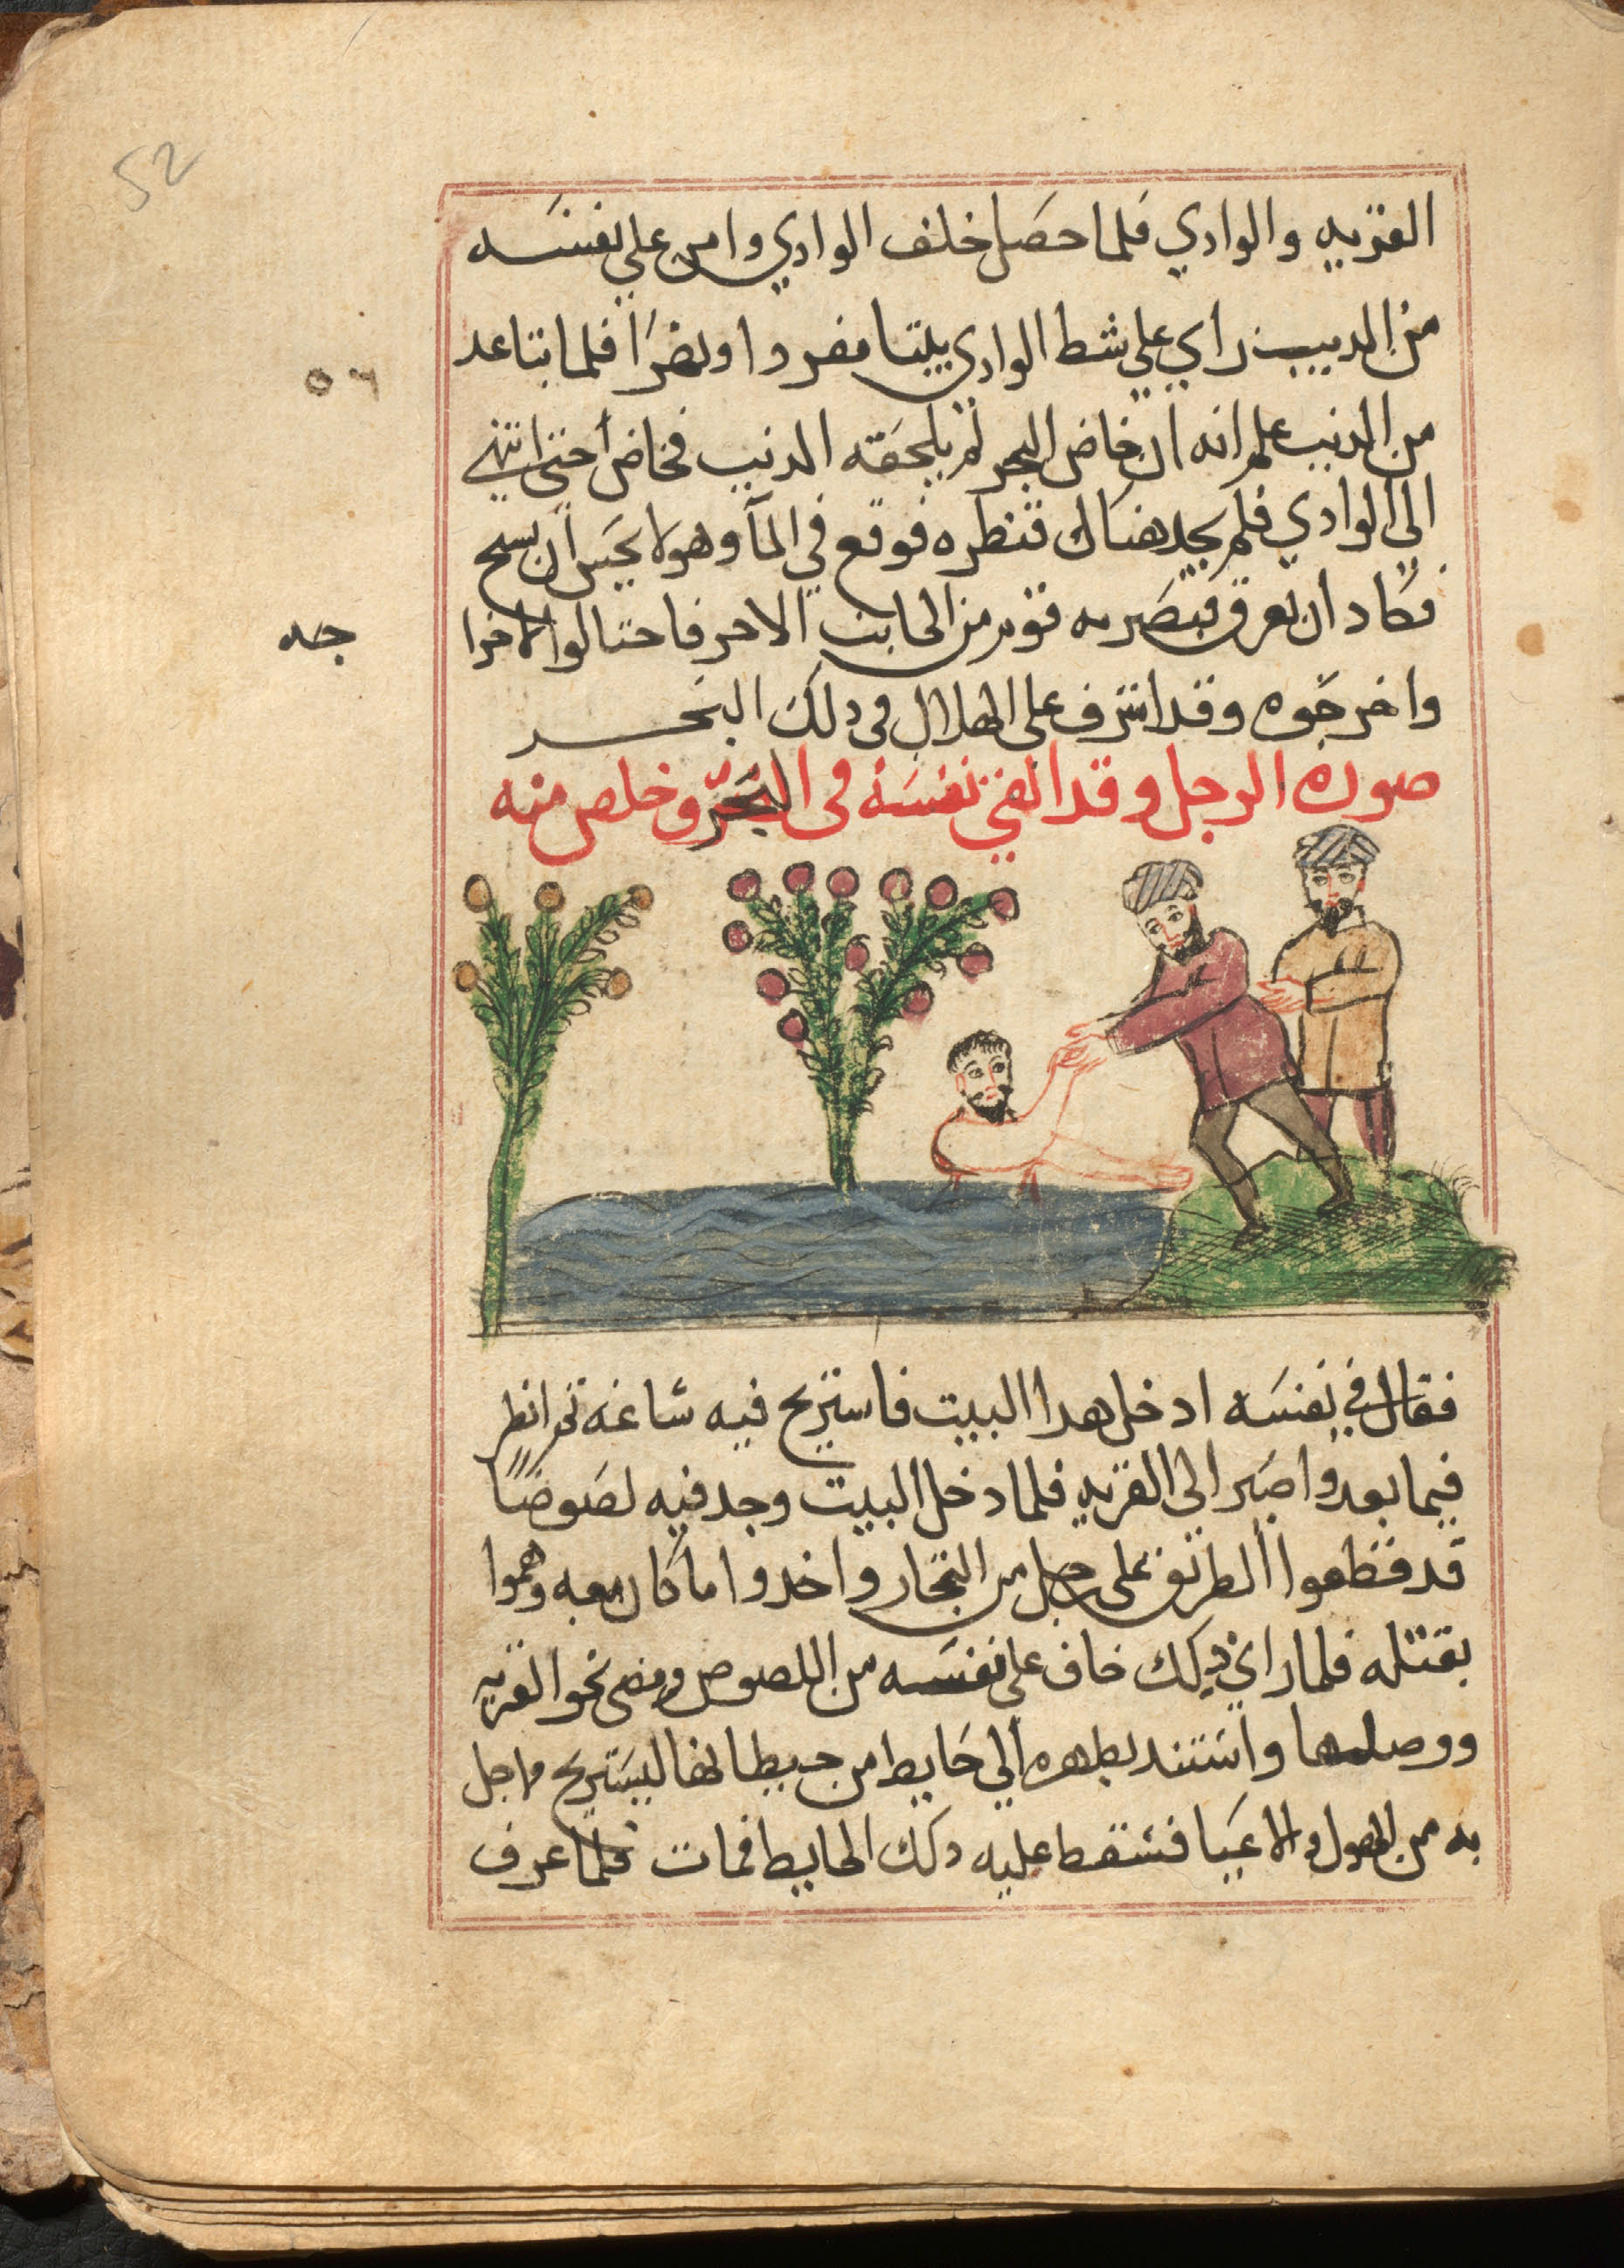 52
القريه والوادي فلما حصل خلف الوادي وامن علي نفسه
من الديب راي علي شط الوادي بيتا مفردا ونضرا فلما بتاعد
من الديب علم انه ان خاض البحر لم يلحقه الديب فخاض حتي انتهي
٥٦
الي الوادي فلم يجد هناك قنطره فوقع في المآ وهو لا يحسن ان يسبح
فكاد ان يغرق فبصر به قوم من الجانب الاخر فاحتالوا لاخرا
جه
واخرجوه وقد اشرف علي الهلاك في دلك البحر
صورة الرجل وقد القي نفسه في البحر وخلص منه
فقال في نفسه ادخل هدا البيت فاستريح فيه ساعة ثم انظر
فيما بعد واصير الي القريه فلما دخل البيت وجد فيه لصوصًا
قد قطعوا الطريق علي رجل من التجار واخدوا ما كان معه وهموا
بقتله فلما راي دلك خاف علي نفسه من اللصوص ومضي نحو القريه
ووصلها واستند بظهره الي حايط من حيطانها ليستريح مما حل
به من الهول والاعيا فسقط عليه دلك الحايط فمات فلما عرف